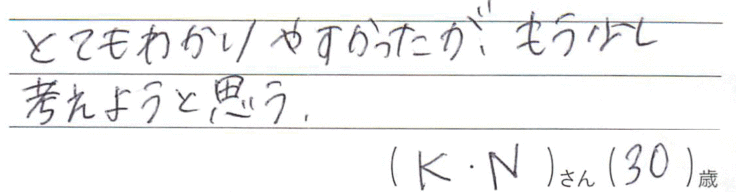 とてもわかりやすかったが、もう少し
考えようと思う.
(K・N)さん(30)歳